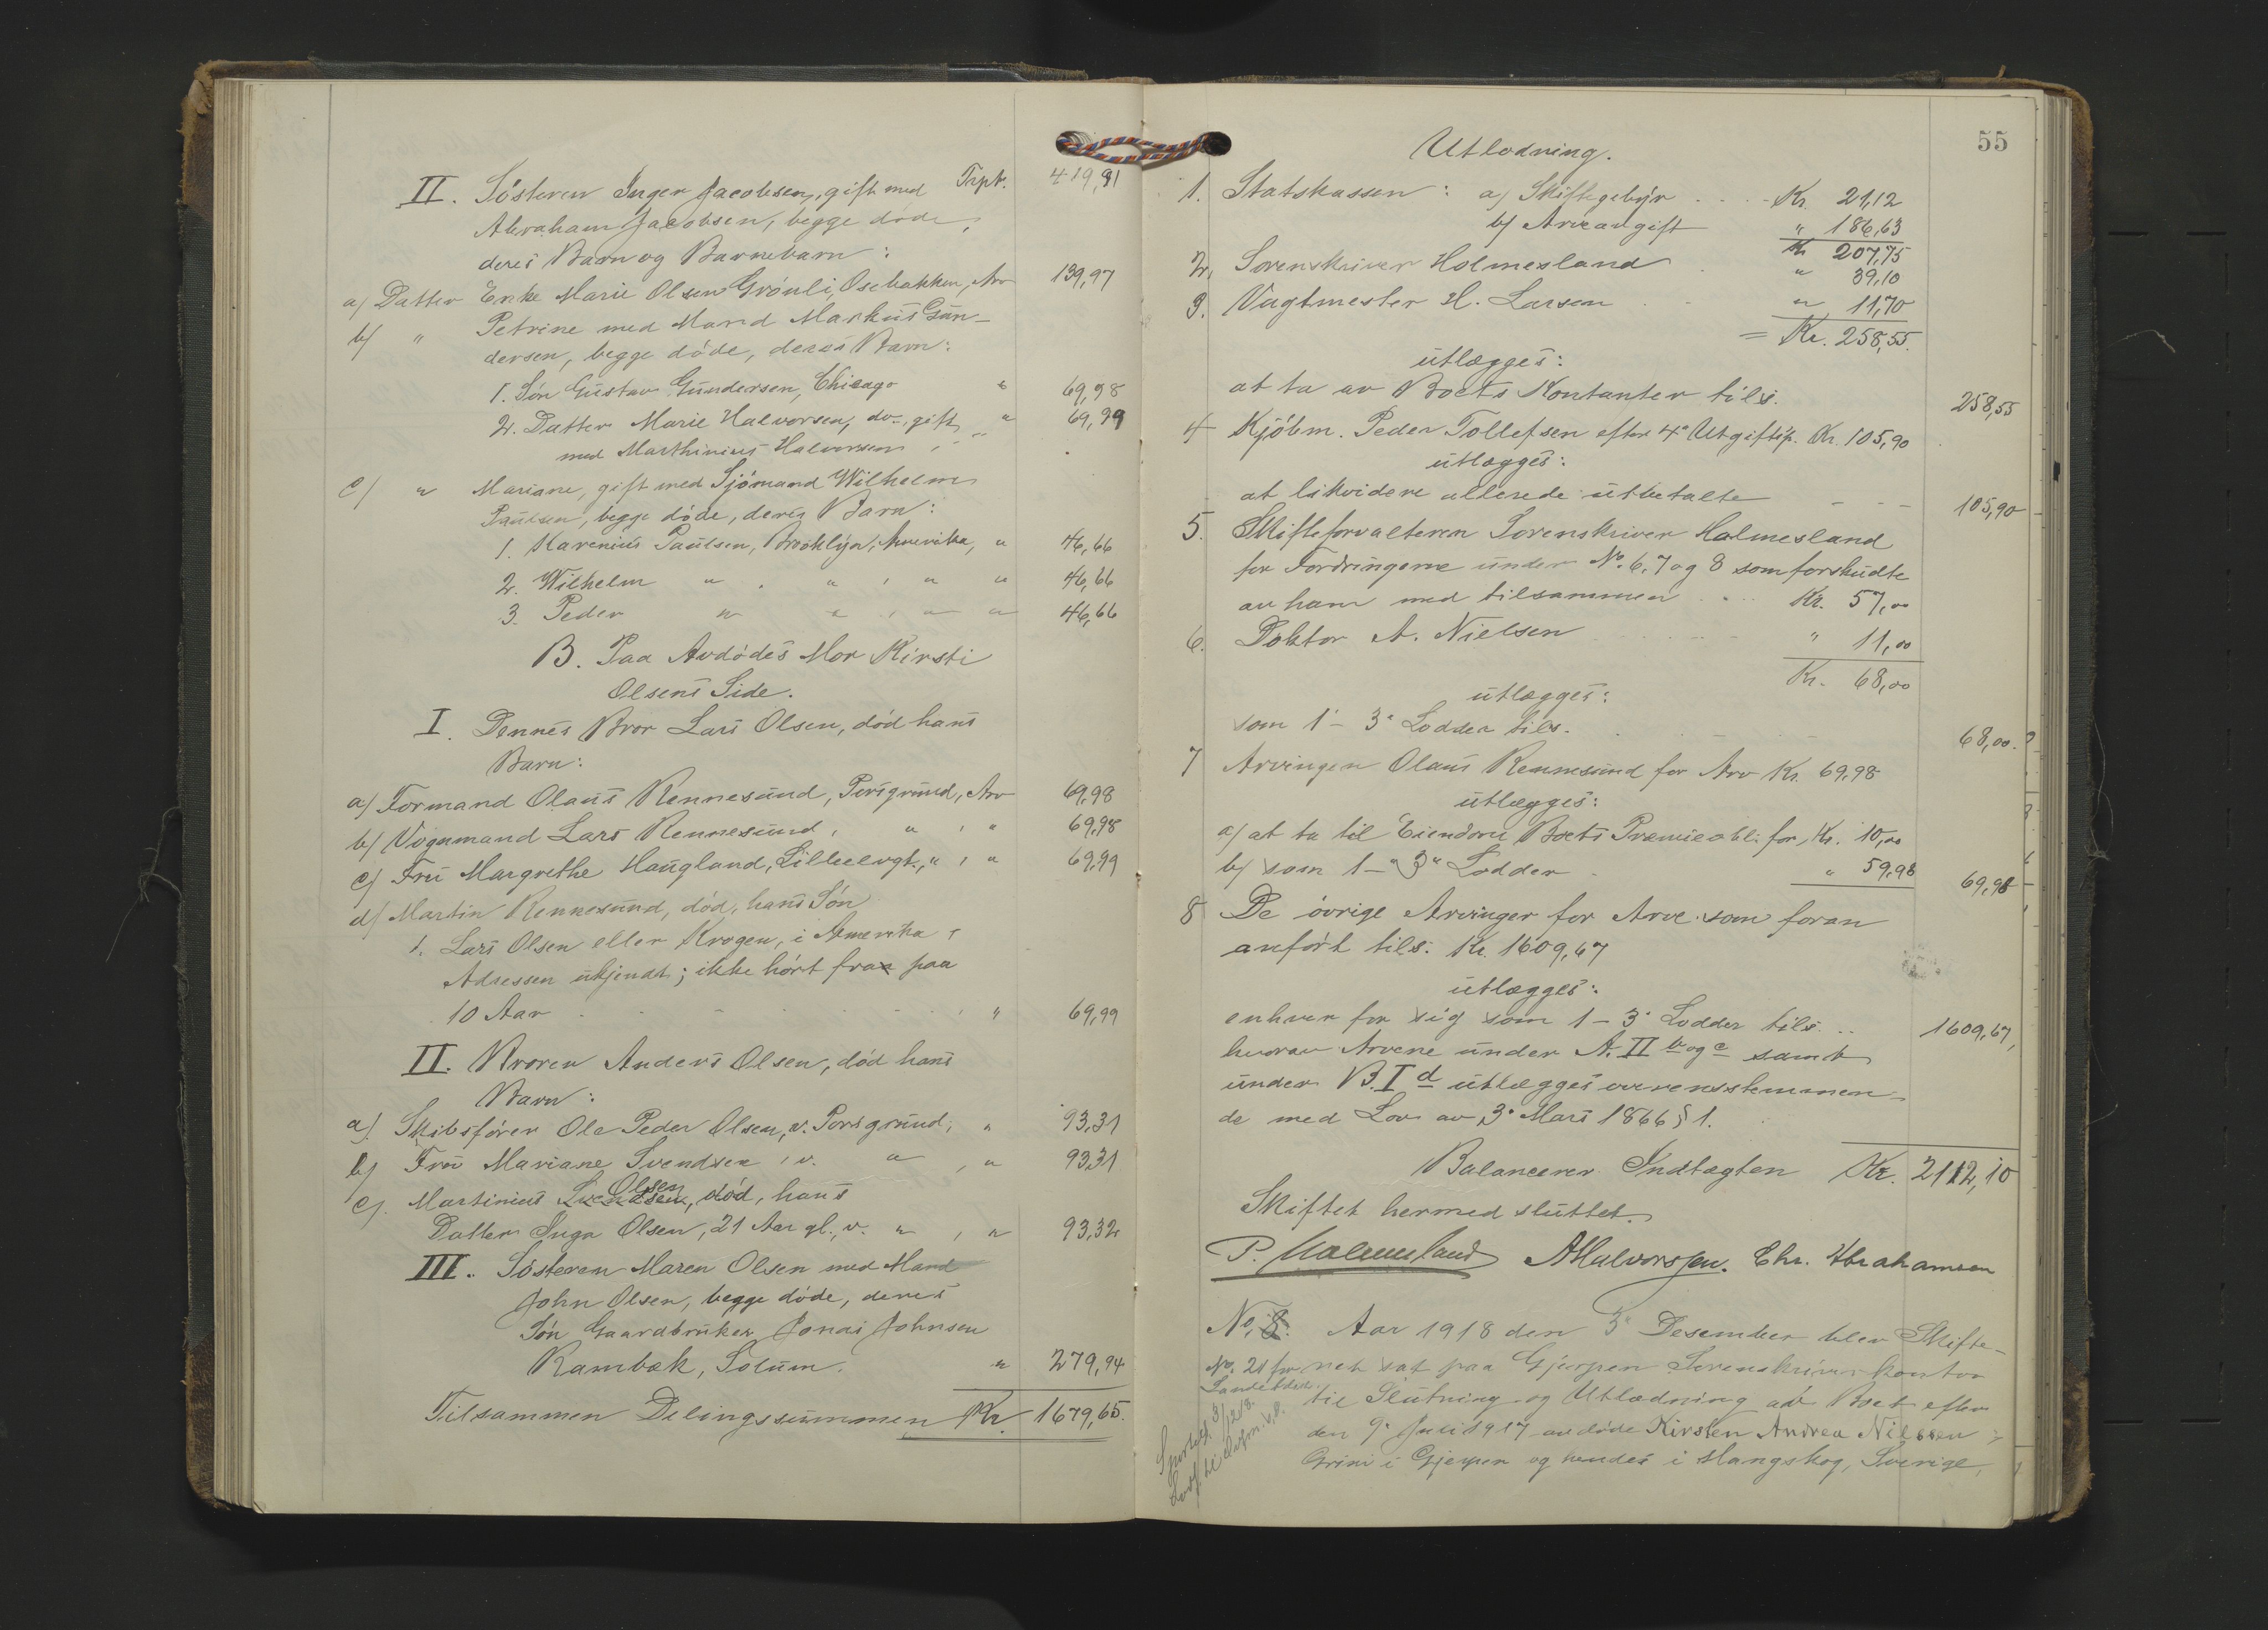 II. Søsteren Inger Jacobsen, gift med Trpt. 419,91
Abraham Jacobsen, begge døde,
deres Barn og Barnebarn:
a) Datter Enke Marie Olsen Grønli, Osebakken, Arv 139,97
b) " Petrine med Mand Markus Gun-
dersen, begge døde, deres Barn:
1. Søn Gustav Gundersen, Chicago " 69,98
2. Datter Marie Halvorsen, do., gift " 69,99
med Marthinius Halvorsen
c) " Mariane, gift med Sjømand Wilhelm
Paulsen, begge døde, deres Barn:
1. Karenius Paulsen, Brooklyn, Amerika, " 46,66
2. Wilhelm " " , " " 46,66
3. Peder " " , " " 46,66
B. Paa Avdødes Mor Kirsti
Olsens Side.
I. Dennes Bror Lars Olsen, død hans
Barn:
a) Formand Olaus Rennesund, Porsgrund, Arv 69,98
b) Vognmand Lars Rennesund, " , " 69,98
c) Fru Margrethe Haugland, Lilleelvgt., " , " 69,99
d) Martin Rennesund, død, hans Søn
1. Lars Olsen eller Krogen, i Amerika,
Adressen ukjendt; ikke hørt fra paa
10 Aar " 69,99
II. Broren Anders Olsen, død hans
Barn:
a) Skibsfører Ole Peder Olsen, v. Porsgrund, " 93,31
b) Fru Mariane Svendsen, v. " , " 93,31
Olsen
c) Martinius Svendsen, død, hans
Datter Inga Olsen, 21 Aar gl., v. " , " 93,32
III. Søsteren Maren Olsen med Mand
John Olsen, begge døde, deres
Søn Gaardbruker Jonas Johnsen
Rambæk, Solum. " 279,94
Tilsammen Delingssummen Kr. 1679,65.
55
Utlodning.
1. Statskassen: a) Skiftegebyr Kr. 21,12
b) Arveavgift " 186,63
Kr 207,75
2. Sorenskriver Holmesland " 39,10
3. Vagtmester H. Larsen " 11,70
= Kr. 258,55.
utlægges:
at ta av Boets Kontanter tils. 258,55
4 Kjøbm. Peder Tollefsen efter 4° Utgiftsp. Kr. 105,90
utlægges:
at likvidere allerede utbetalte 105,90
5. Skifteforvalteren Sorenskriver Holmesland
for Fordringerne under No. 6, 7 og 8 som forskudte
av ham med tilsammen Kr. 57,00
6. Doktor A. Nielsen " 11,00
Kr. 68,00
utlægges:
som 1 - 3° Lodder tils. 68,00.
7 Arvingen Olaus Rennesund for Arv Kr. 69,98
utlægges:
a) at ta til Eiendom Boets Premieobli. for, Kr. 10,00
b) som 1 - 3° Lodder " 59,98 69,98
8 De øvrige Arvinger for Arve som foran
anført tils. Kr. 1609,67
utlægges:
enhver for sig som 1 - 3° Lodder tils. 1609,67,
hvorav Arvene under A. II b og c samt
under B. I d utlægges overensstemmen-
de med Lov av 3° Mars 1866 § 1.
Balancerer Indtægten Kr. 2112,10
Skiftet hermed sluttet.
P. Holmesland AHalvorsen. Chr. Abrahamsen
No. 8. Aar 1918 den 3° Desember blev Skifte-
No. 21 for ret sat paa Gjerpen Sorenskriverkontor
til Slutning og Utlodning av Boet efter
den 9° Juli 1917 avdøde Kirsten Andrea Nilssen
Grini i Gjerpen og hendes i Mangskog, Sverige,